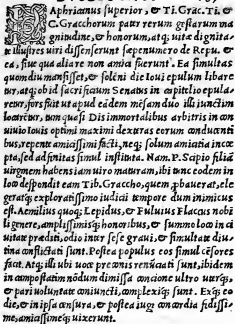 APhricanus superior, & Ti. Grac. Ti. &
C. Gracchorum pater rerum gestarum ma
gnitudine, & honorum, atq; uitæ dignita-
te illustres uiri dissenserunt sæpenumero de Repu. &
ea, siue qua alia re non amici fuerunt. Ea simultas
quom diu mansisset, & solenni die Ioui epulum libare
tur, atq; ob id sacrificium Senatus in capitolio epula-
retur, fors fuit ut apud eadem mensam duo illi iunctim
locarentur, tum quasi Dis immortalibus arbitris in con
uiuio Iouis optimi maximi dexteras eorum conducenti
bus, repente amicissimi facti, neq; solum amicitia incœ
pta, sed adfinitas simul instituta. Nam. P. Scipio filiam
uirginem habens iam uiro maturam, ibi tunc eodem in
loco despondit eam Tib. Graccho, quem probauerat, ele
geratq; exploratissimo iudicii tempore dum inimicus
est. Aemilius quoq; Lepidus, & Fuluius Flaccus nobi
li genere, amplissimisq; honoribus, & summo loco in ci
uitate præditi, odio inter sese graui, & simultate diu-
tina conflictati sunt. Postea populus eos simul censores
facit. Atq; illi ubi uoce præconis renuciati sunt, ibidem
in campo statim nondum dimissa concione ultro uterq;
& pari uoluntate coniuncti, complexiq; sunt. Exq; eo
die, & in ipsa censura, & postea iugi concordia fidissi-
me, amicissimeq; uixerunt.